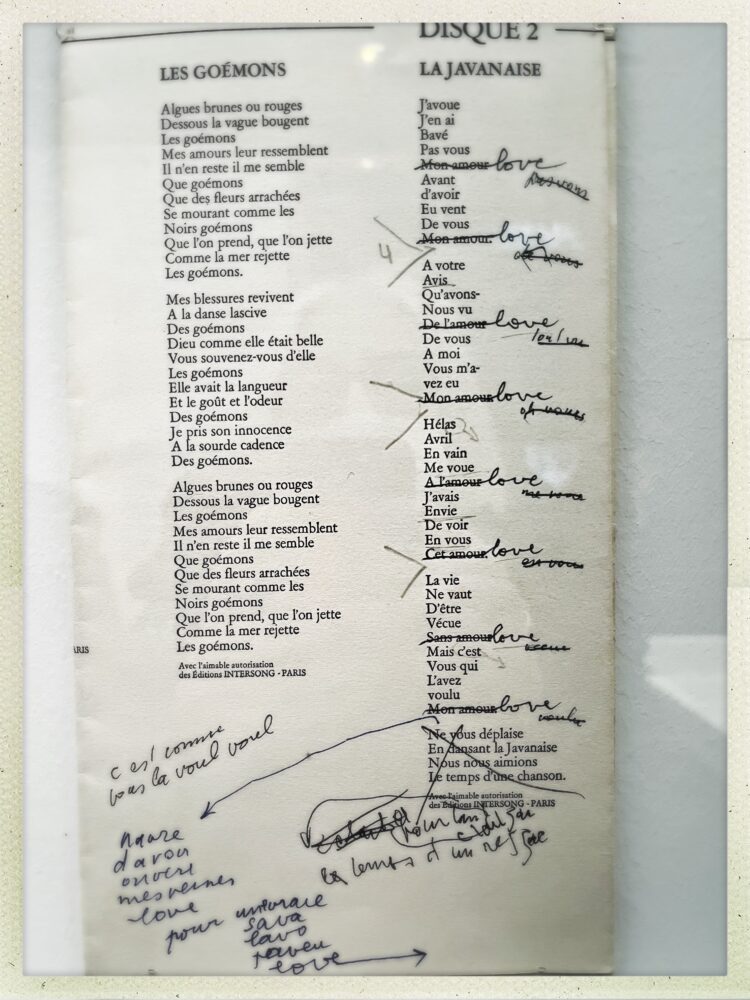 DISQUE 2
LES GOÉMONS
Algues brunes ou rouges
Dessous la vague bougent
Les goémons
Mes amours leur ressemblent
Il n'en reste il me semble
Que goémons
Que des fleurs arrachées
Se mourant comme les
Noirs goémons
Que l'on prend, que l'on jette
Comme la mer rejette
Les goémons.
Mes blessures revivent
A la danse lascive
Des goémons
Dieu comme elle était belle
Vous souvenez-vous d'elle
Les goémons
Elle avait la langueur
Et le goût et l'odeur
Des goémons
Je pris son innocence
A la sourde cadence
Des goémons.
Algues brunes ou rouges
Dessous la vague bougent
Les goémons
Mes amours leur ressemblent
Il n'en reste il me semble
Que goémons
Que des fleurs arrachées
Se mourant comme les
Noirs goémons
Que l'on prend, que l'on jette
Comme la mer rejette
Les goémons.
Avec l'aimable autorisation
des Éditions INTERSONG - PARIS
LA JAVANAISE
J'avoue
J'en ai
Bavé
Pas vous
Mon amour love
pas vous
Avant
d'avoir
Eu vent
De vous
Mon amour. love
de vous
4
A votre
Avis
Qu'avons-
Nous vu
De l'amour love
De vous
A moi
Vous m'a-
vez eu
Mon amour love
Hélas
Avril
En vain
Me voue
A l'amour love
me voue
J'avais
Envie
De voir
En vous
Cet amour. love
en vous
La vie
Ne vaut
D'être
Vécue
Sans amour love
vécue
Mais c'est
Vous qui
L'avez
voulu
Mon amour. love
voulu
Ne vous déplaise
En dansant la Javanaise
Nous nous aimions
Le temps d'une chanson.
Avec l'aimable autorisation
des Éditions INTERSONG - PARIS
ARIS
c'est comme
vous
d'avoir
ouvert
mes veines
love
pour
le temps d'un
sava
lavo
l'aveu
love